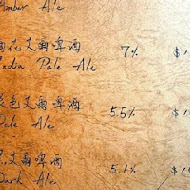 Amber Ale
花艾爾啤酒 7% $1
India Pale Ale
色艾爾啤酒 5.5% $1
Pale Ale
艾爾啤酒 5.1% $
Dark Ale